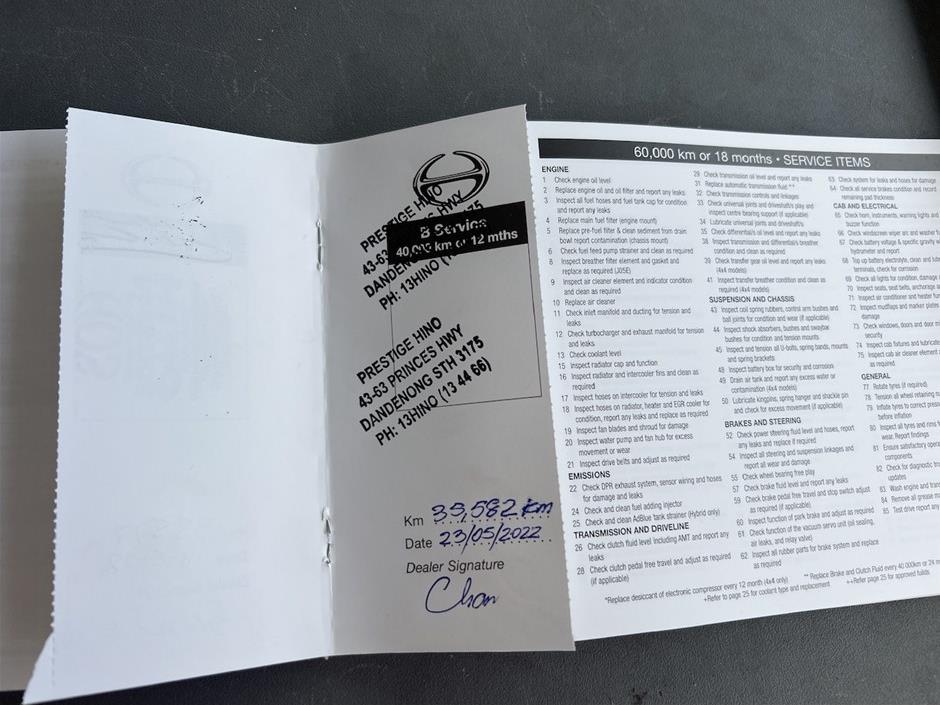 PRESTIGE HINO
43-63 PRINCES HWY
DANDENONG STH 3175
PH: 13HINO (13
B Service
40,000 km or 12 mths
PRESTIGE HINO
43-63 PRINCES HWY
DANDENONG STH 3175
PH: 13HINO (13 44 66)
Km 39,582 km
Date 23/05/2022
Dealer Signature
Chan
60,000 km or 18 months • SERVICE ITEMS
ENGINE
1 Check engine oil level
2 Replace engine oil and oil filter and report any leaks
3 Inspect all fuel hoses and fuel tank cap for condition
and report any leaks
4 Replace main fuel filter (engine mount)
5 Replace pre-fuel filter & clean sediment from drain
bowl report contamination (chassis mount)
6 Check fuel feed pump strainer and clean as required
8 Inspect breather filter element and gasket and
replace as required (J05E)
9 Inspect air cleaner element and indicator condition
and clean as required
10 Replace air cleaner
11 Check inlet manifold and ducting for tension and
leaks
12 Check turbocharger and exhaust manifold for tension
and leaks
13 Check coolant level
15 Inspect radiator cap and function
16 Inspect radiator and intercooler fins and clean as
required
17 Inspect hoses on intercooler for tension and leaks
18 Inspect hoses on radiator, heater and EGR cooler for
condition, report any leaks and replace as required
19 Inspect fan blades and shroud for damage
20 Inspect water pump and fan hub for excess
movement or wear
21 Inspect drive belts and adjust as required
EMISSIONS
22 Check DPR exhaust system, sensor wiring and hoses
for damage and leaks
24 Check and clean fuel adding injector
25 Check and clean AdBlue tank strainer (Hybrid only)
TRANSMISSION AND DRIVELINE
26 Check clutch fluid level including AMT and report any
leaks
28 Check clutch pedal free travel and adjust as required
(if applicable)
29 Check transmission oil level and report any leaks
31 Replace automatic transmission fluid **
32 Check transmission controls and linkages
33 Check universal joints and driveshaft/s play and
inspect centre bearing support (if applicable)
34 Lubricate universal joints and driveshaft/s
35 Check differential/s oil level and report any leaks
38 Inspect transmission and differential/s breather
condition and clean as required
39 Check transfer gear oil level and report any leaks
(4x4 models)
41 Inspect transfer breather condition and clean as
required (4x4 models)
SUSPENSION AND CHASSIS
43 Inspect coil spring rubbers, control arm bushes and
ball joints for condition and wear (if applicable)
44 Inspect shock absorbers, bushes and swaybar
bushes for condition and tension mounts
45 Inspect and tension all U-bolts, spring bands, mounts
and spring brackets
48 Inspect battery box for security and corrosion
49 Drain air tank and report any excess water or
contamination (4x4 models)
50 Lubricate kingpins, spring hanger and shackle pin
and check for excess movement (if applicable)
BRAKES AND STEERING
52 Check power steering fluid level and hoses, report
any leaks and replace if required
54 Inspect all steering and suspension linkages and
report all wear and damage
55 Check wheel bearing free play
57 Check brake fluid level and report any leaks
59 Check brake pedal free travel and stop switch adjust
as required (if applicable)
60 Inspect function of park brake and adjust as required
61 Check function of the vacuum servo unit (oil sealing,
air leaks, and relay valve)
62 Inspect all rubber parts for brake system and replace
as required
63 Check system for leaks and hoses for damage
64 Check all service brakes condition and record
remaining pad thickness
CAB AND ELECTRICAL
65 Check horn, instruments, warning lights and
buzzer function
66 Check windscreen wiper arc and washer
67 Check battery voltage & specific gravity
hydrometer and report
68 Top up battery electrolyte, clean and
terminals, check for corrosion
69 Check all lights for condition, damage
70 Inspect seats, seat belts, anchorage
71 Inspect air conditioner and heater
72 Inspect mudflaps and marker plates
damage
73 Check windows, doors and door
security
74 Inspect cab fixtures and lubricate
75 Inspect cab air cleaner element
as required
GENERAL
77 Rotate tyres (if required)
78 Tension all wheel retaining
79 Inflate tyres to correct
before inflation
80 Inspect all tyres and rims
wear. Report findings
81 Ensure satisfactory
components
82 Check for diagnostic
updates
83 Wash engine and
84 Remove all grease
85 Test drive report any
*Replace desiccant of electronic compressor every 12 month (4x4 only)
** Replace Brake and Clutch Fluid every 40 000km or 24
+Refer to page 25 for coolant type and replacement
++Refer page 25 for approved fluids